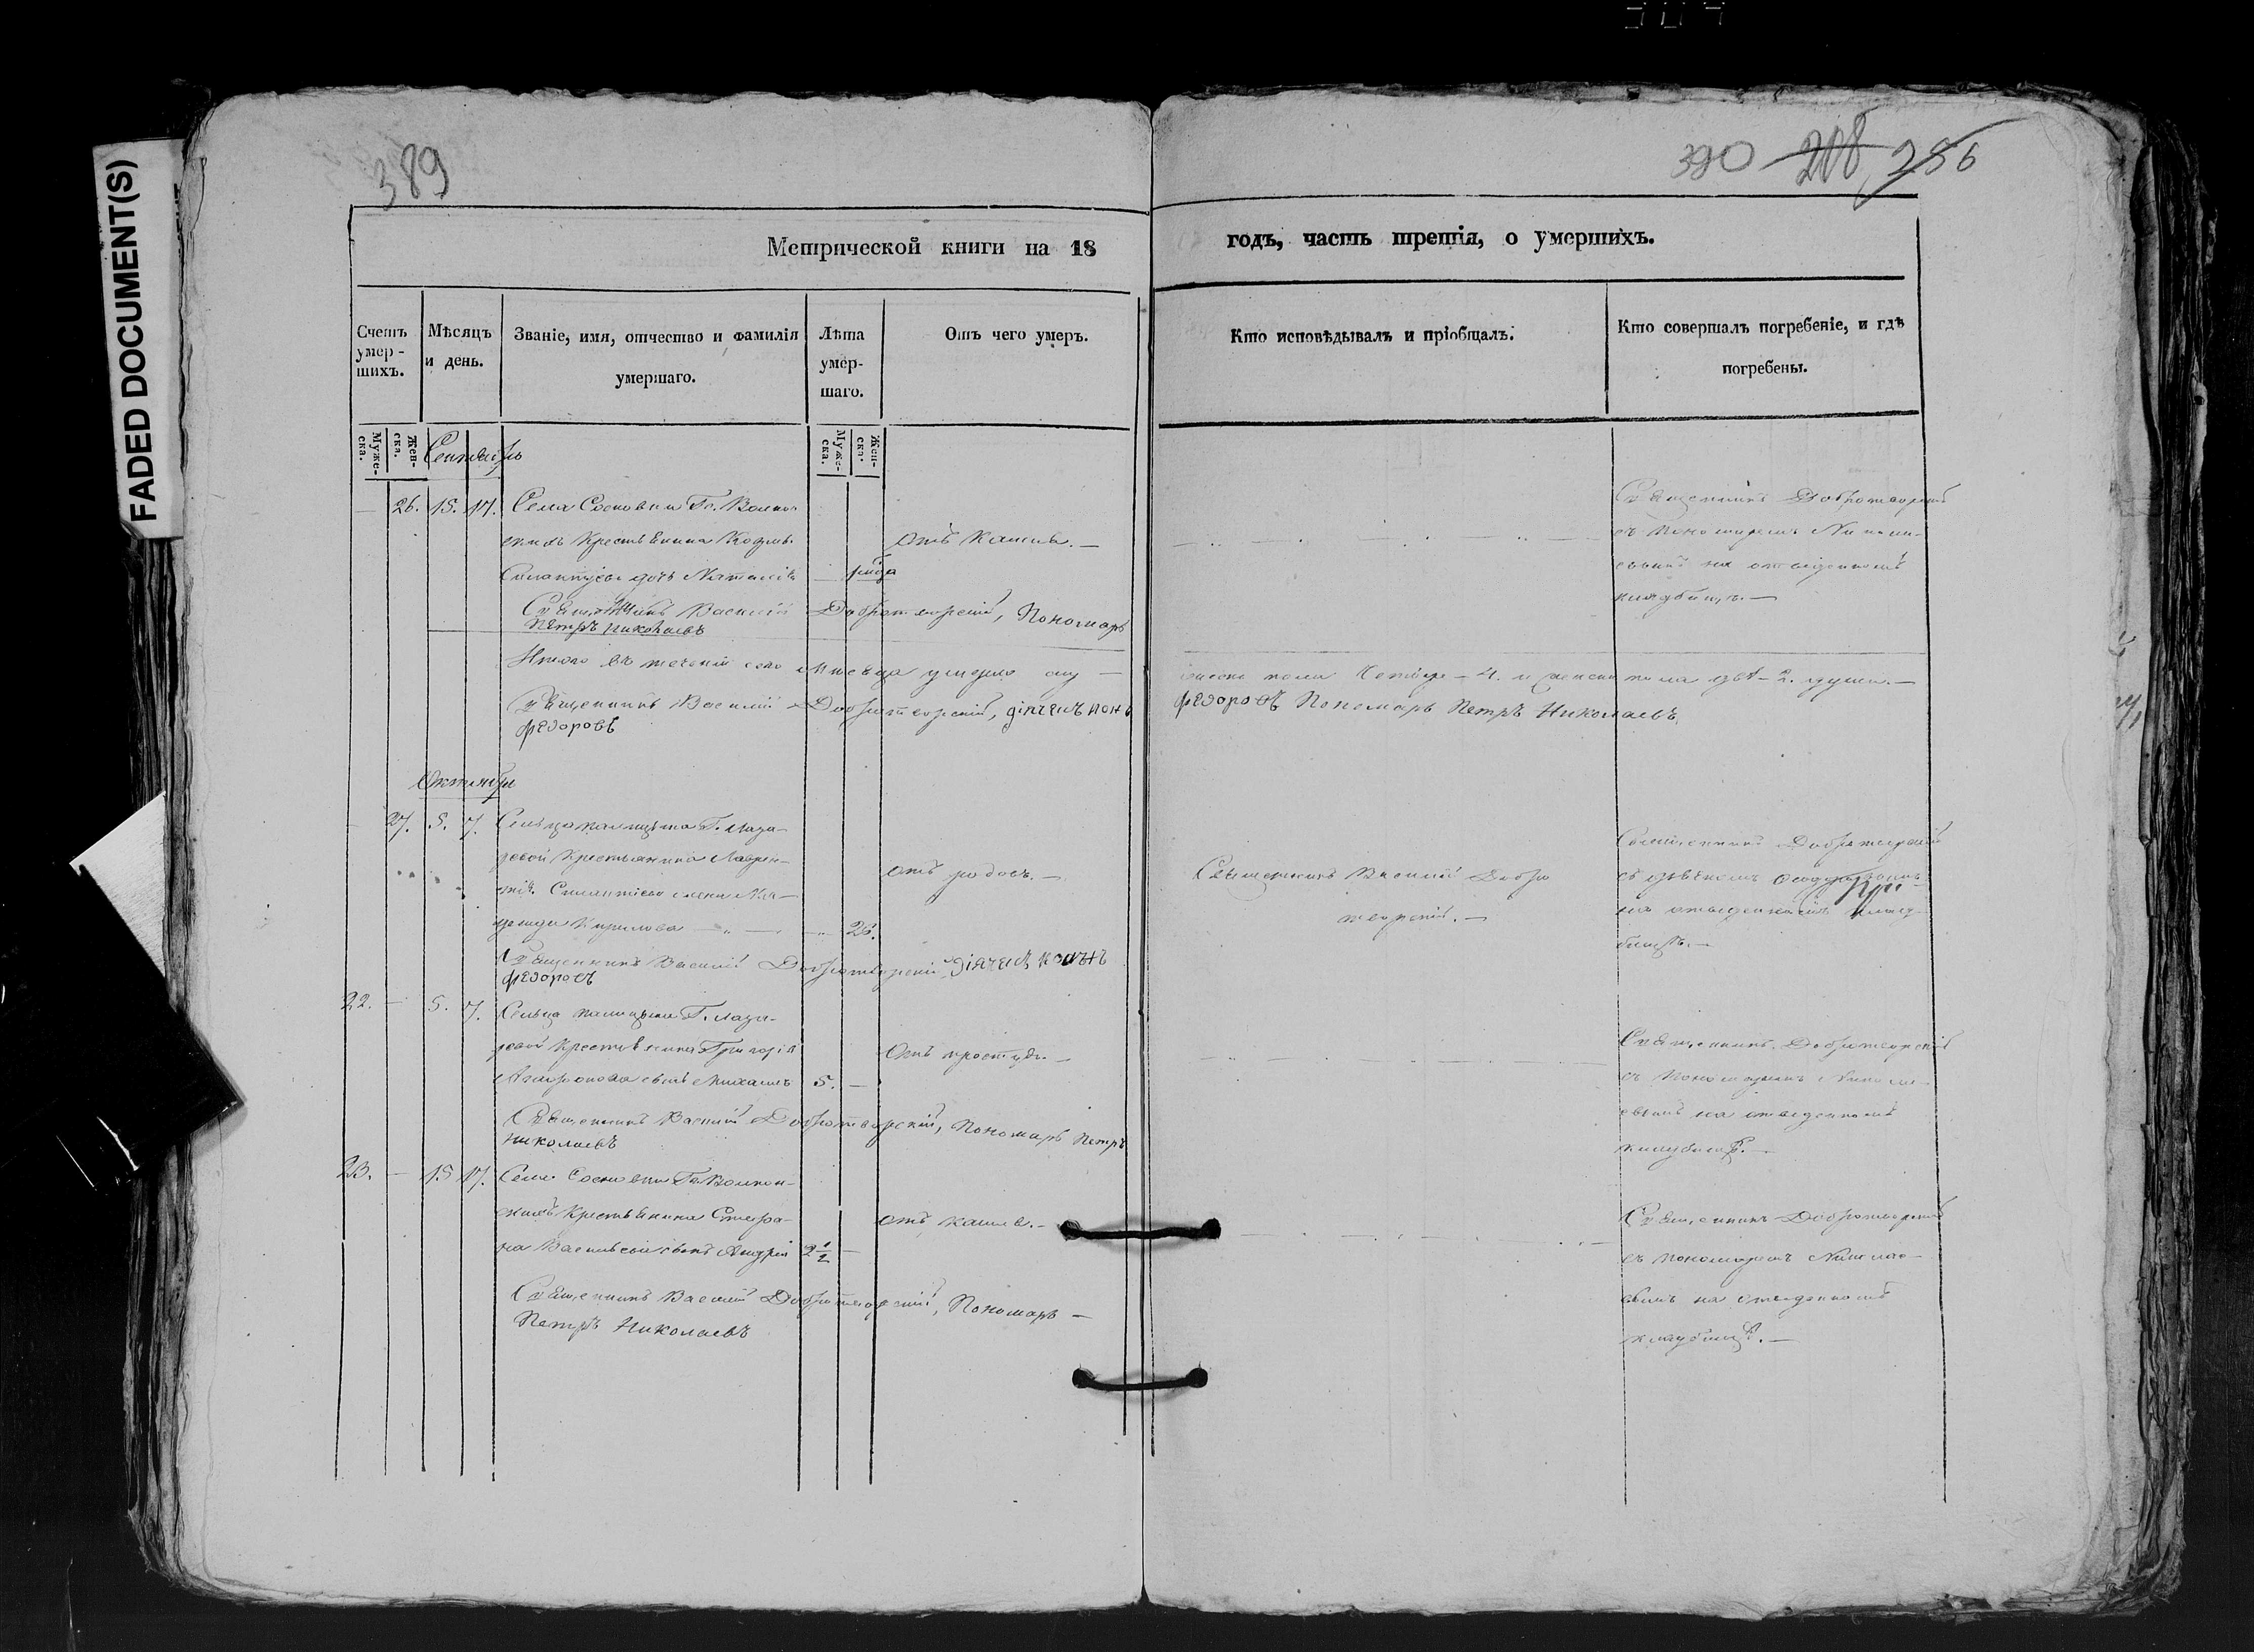 FADED DOCUMENT(S)
389
390 208 256
Метрической книги на 18
годъ, часть третія, о умершихъ.
Счетъ умер-шихъ.
Мѣсяцъ и день.
Званіе, имя, отчество и фамилія умершаго.
Лѣта умер-шаго.
Отъ чего умеръ.
Кто исповѣдывалъ и пріобщалъ.
Кто совершалъ погребеніе, и гдѣ погребены.
Муже-ска.
Жен-ска.
Муже-ска.
Жен-ска.
Сентябрь
26. 15. 17. Села Сосновки Гг. Волкон-
скихъ Крестьянина Козмы
дочь Наталія
отъ кашля.
Священникъ Доброторскій
съ пономаремъ Николае-
вымъ на отведенномъ
кладбищѣ.
Священникъ Василій Доброторскій, Пономарь
Петръ Николаевъ
Итого въ теченіи сего мѣсяца умерло му-
жеска пола Четыре - 4. и женска пола двѣ - 2. души.
Священникъ Василій Доброторскій, діячекъ
федоровъ
федоровъ Пономарь Петръ Николаевъ
Октябрь
27. 5. 7. Сельца Г. Лаза-
ревой Крестьянина Лаврен-
тія жена На-
дежда Кирилова 26.
отъ родовъ.
Священникъ Василій Добро
творскій.
Священникъ Доброторскій
съ дьячкомъ
на отведенномъ клад-
бищѣ.
Священникъ Василій Доброторскій діячекъ
федоровъ
22. 5. 7. Сельца Г. Лаза-
ревой Крестьянина Григорія
сынъ Михаилъ 5.
Отъ простуды.
Священникъ Доброторскій
съ Пономаремъ Никола-
евымъ на отведенномъ
кладбищѣ.
Священникъ Василій Доброторскій, Пономарь Петръ
Николаевъ
23. 15 17. Села Сосновки Гг. Волкон-
скихъ Крестьянина Стефа-
на Васильева сынъ Андрей 2 1/2
отъ кашля.
Священникъ Доброторскій
съ пономаремъ Николае-
вымъ на отведенномъ
кладбищѣ.
Священникъ Василій Доброторскій, Пономарь
Петръ Николаевъ